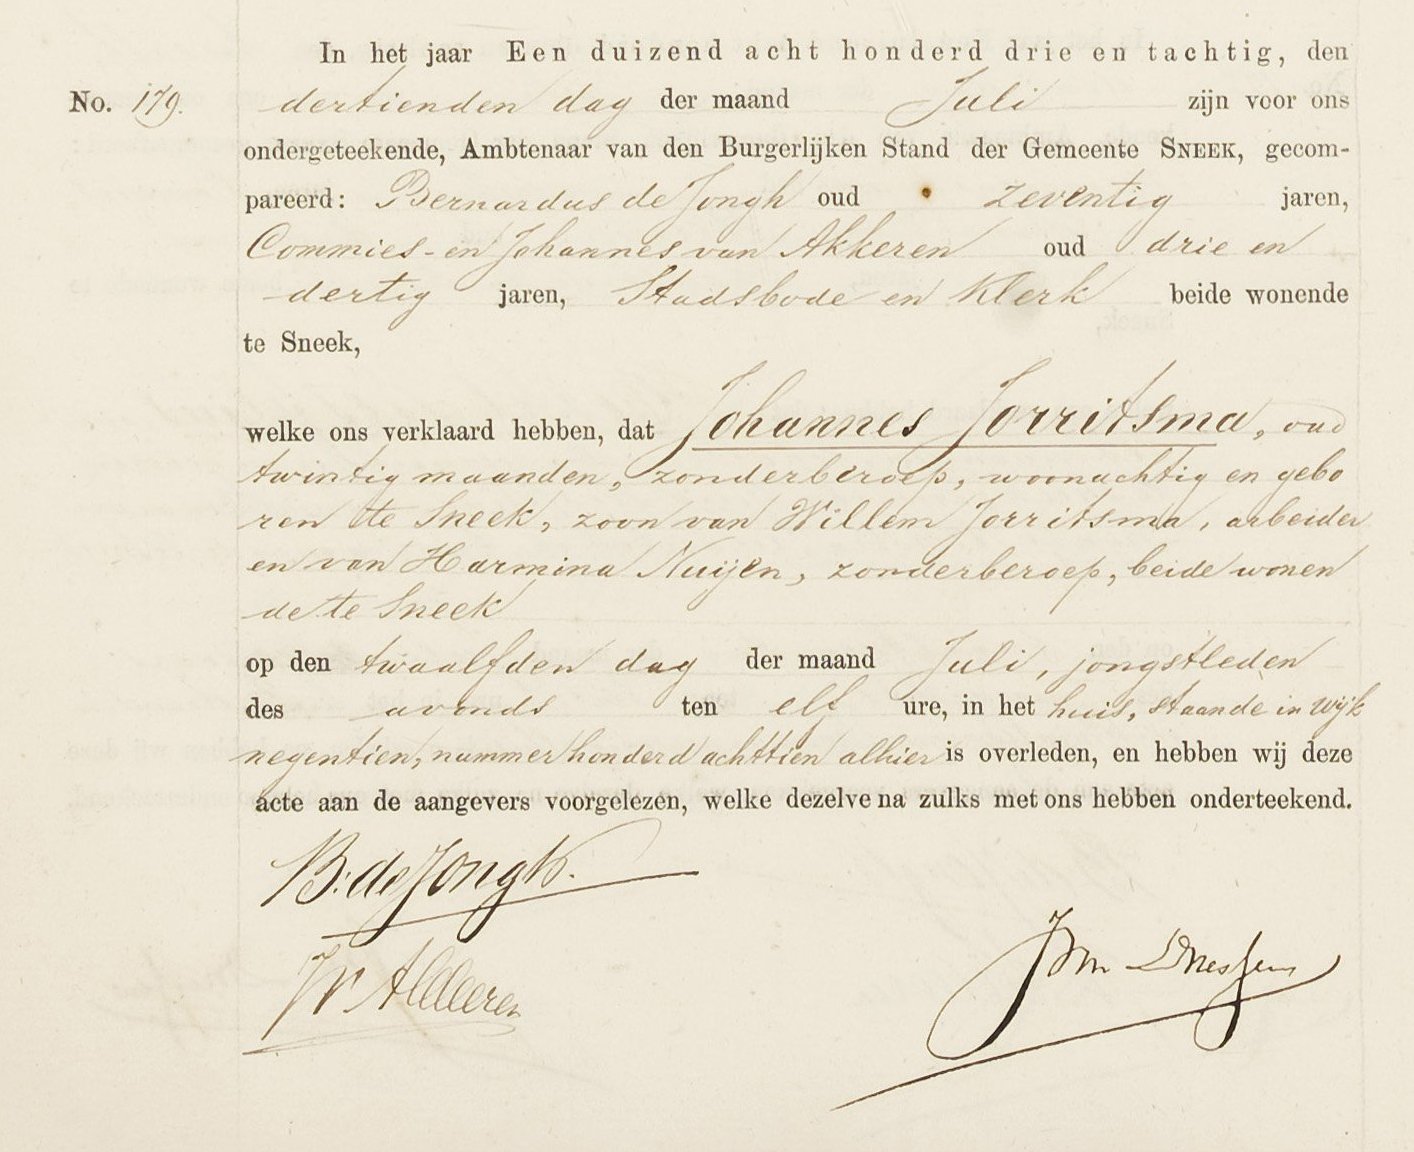 In het jaar Een duizend acht honderd drie en tachtig, den
No. 179. dertienden dag der maand Juli zijn voor ons
ondergeteekende, Ambtenaar van den Burgerlijken Stand der Gemeente SNEEK, gecom-
pareerd: Bernardus de Jongh oud zeventig jaren,
Commies- en Johannes van Akkeren oud drie en
dertig jaren, Stadsbode en Klerk beide wonende
te Sneek,
welke ons verklaard hebben, dat Johannes Jorritsma, oud
twintig maanden, zonder beroep, woonachtig en gebo
ren te Sneek, zoon van Willem Jorritsma, arbeider
en van Harmina Nuijen, zonder beroep, beide wonen
de te Sneek
op den twaalfden dag der maand Juli, jongstleden
des avonds ten elf ure, in het huis, staande in wijk
negentien, nummer honderd achttien alhier is overleden, en hebben wij deze
acte aan de aangevers voorgelezen, welke dezelve na zulks met ons hebben onderteekend.
B. de Jongh.
Jv Akkeren